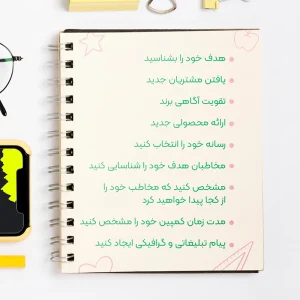 هدف خود را بشناسید
یافتن مشتریان جدید
تقویت آگاهی برند
ارائه محصولی جدید
رسانه خود را انتخاب کنید
مخاطبان هدف خود را شناسایی کنید
مشخص کنید که مخاطب خود را
از کجا پیدا خواهید کرد
مدت زمان کمپین خود را مشخص کنید
پیام تبلیغاتی و گرافیکی ایجاد کنید